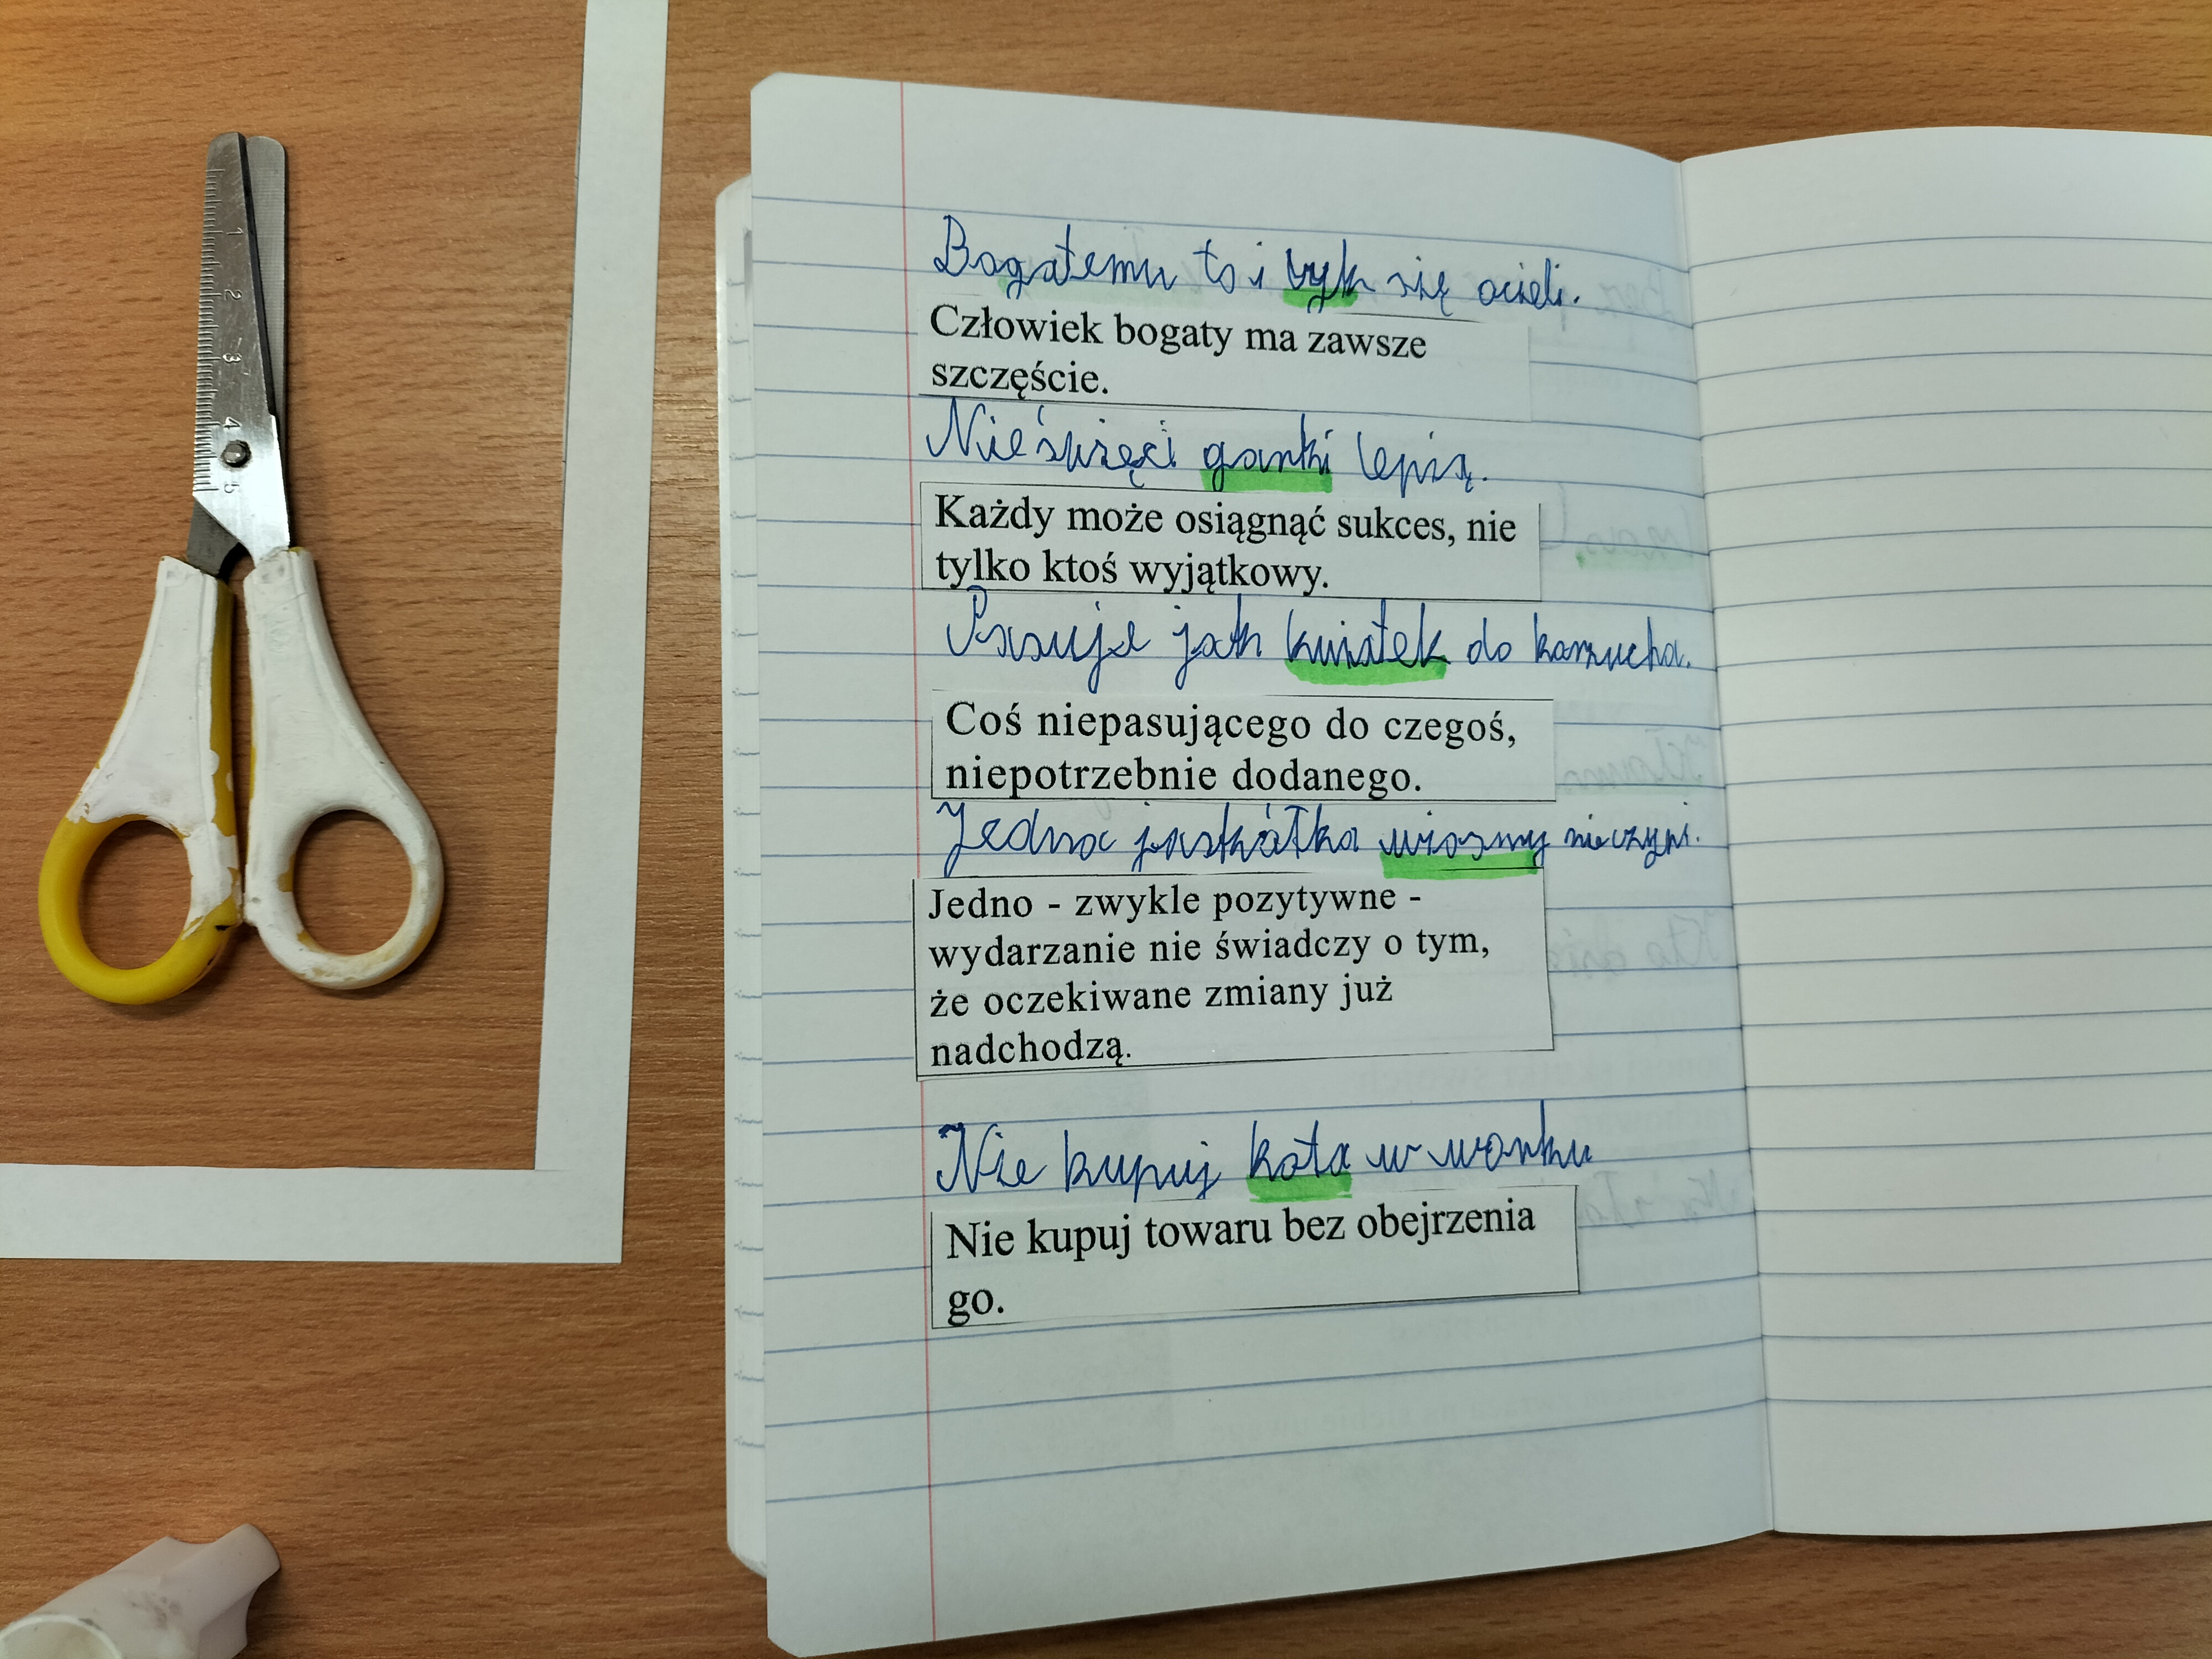 Bogatemu to i byk się ocieli.
Człowiek bogaty ma zawsze
szczęście.
Nie święci garnki lepią.
Każdy może osiągnąć sukces, nie
tylko ktoś wyjątkowy.
Pasuje jak kwiatek do kożucha.
Coś niepasującego do czegoś,
niepotrzebnie dodanego.
Jedna jaskółka wiosny nie czyni.
Jedno - zwykle pozytywne -
wydarzanie nie świadczy o tym,
że oczekiwane zmiany już
nadchodzą.
Nie kupuj kota w worku
Nie kupuj towaru bez obejrzenia
go.
1
2
3
4
5